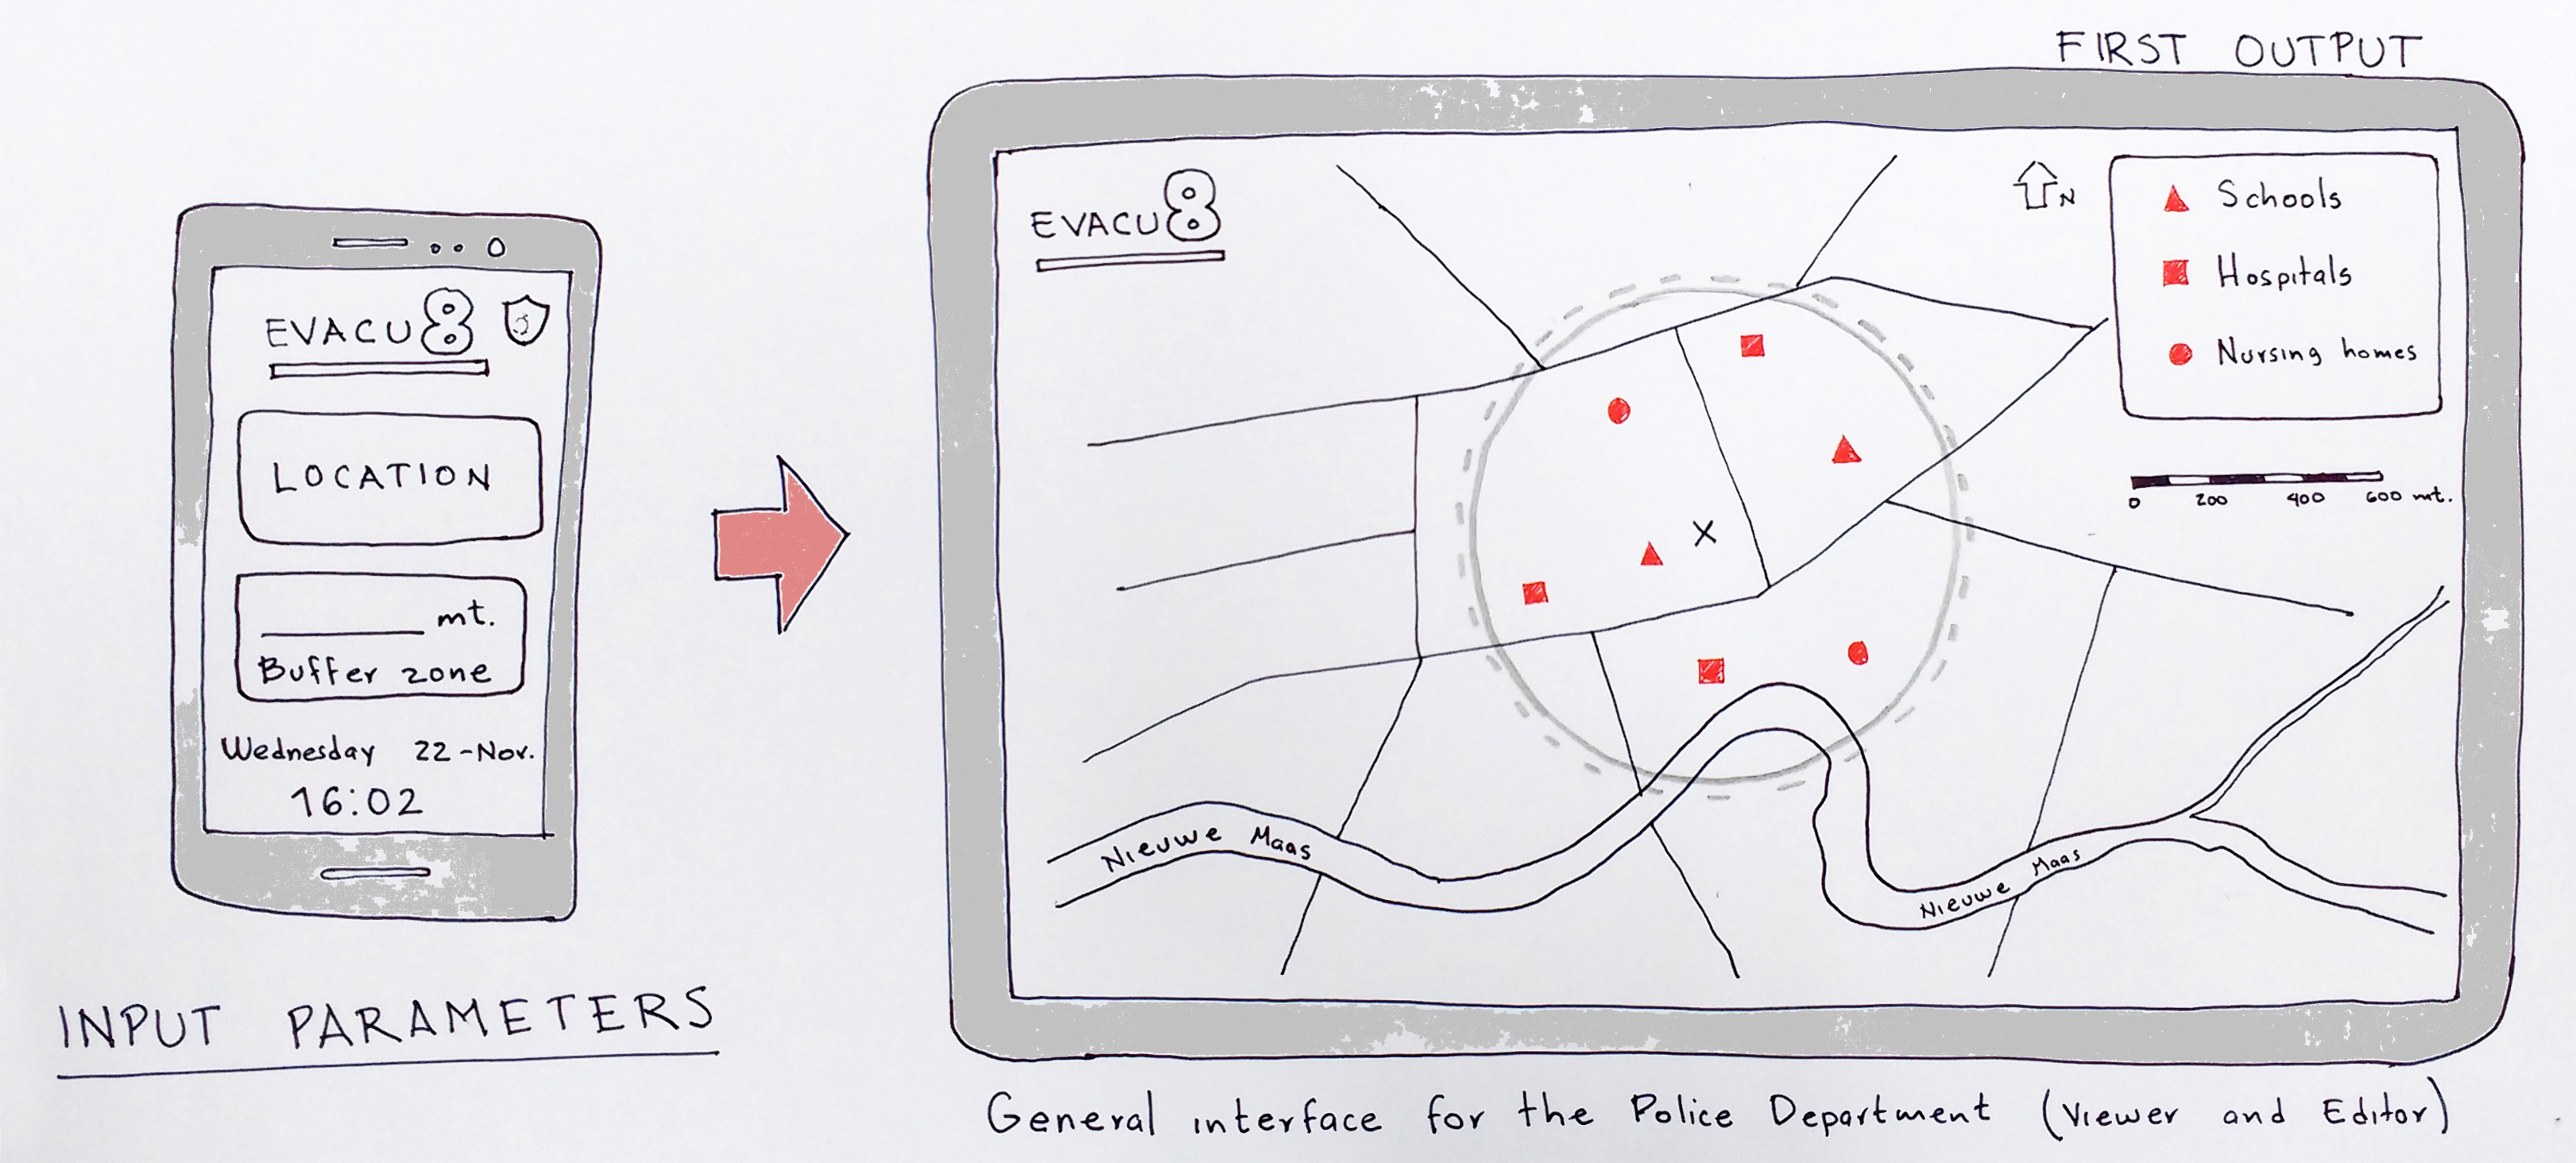 FIRST OUTPUT
EVACU8
LOCATION
mt.
Buffer zone
Wednesday 22-Nov.
16:02
INPUT PARAMETERS
EVACU8
N
Schools
Hospitals
Nursing homes
0 200 400 600 mt.
X
Nieuwe Maas
Nieuwe Maas
General interface for the Police Department (Viewer and Editor)